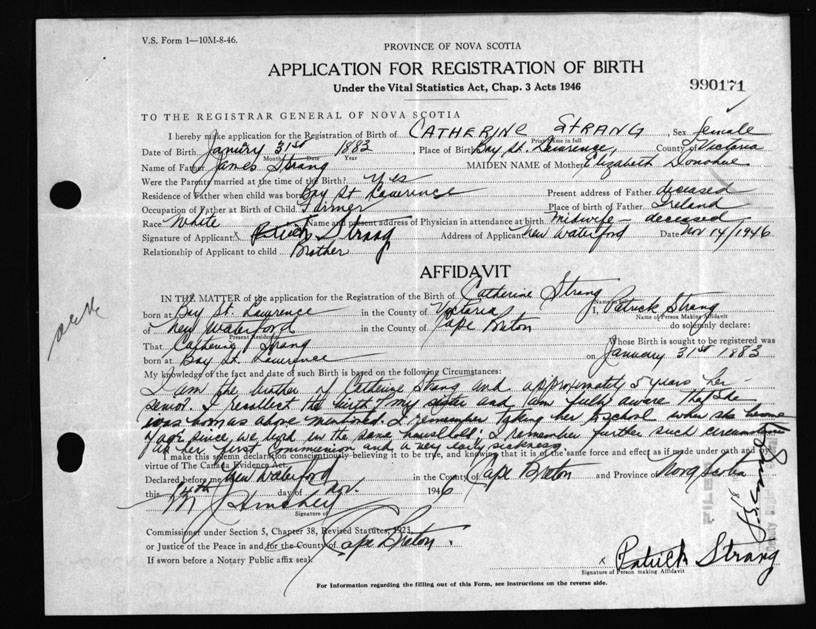 V.S. Form 1—10M-8-46.
PROVINCE OF NOVA SCOTIA
APPLICATION FOR REGISTRATION OF BIRTH
Under the Vital Statistics Act, Chap. 3 Acts 1946
990171
TO THE REGISTRAR GENERAL OF NOVA SCOTIA
I hereby make application for the Registration of Birth of CATHERINE STRANG, Sex female
Print Name in full
Date of Birth January 31st 1883 Place of Birth Bay St. Lawrence, County of Victoria
Month Date Year
Name of Father James Strang MAIDEN NAME of Mother Elizabeth Donohue
Were the Parents married at the time of the Birth? Yes
Residence of Father when child was born Bay St Lawrence Present address of Father deceased
Occupation of Father at Birth of Child Farmer Place of birth of Father Ireland
Race White Name and present address of Physician in attendance at birth midwife - deceased
Signature of Applicant x Patrick Strang Address of Applicant New Waterford Date Nov 14/1946
Relationship of Applicant to child Brother
AFFIDAVIT
IN THE MATTER of the application for the Registration of the Birth of Catherine Strang
Name in full
born at Bay St. Lawrence in the County of Victoria I, Patrick Strang
Name of Person Making Affidavit
of New Waterford in the County of Cape Breton do solemnly declare:
Present Residence
That Catherine Strang Whose Birth is sought to be registered was
born at Bay St. Lawrence on January 31st 1883
My knowledge of the fact and date of such Birth is based on the following Circumstances:
I am the brother of Catherine Strang and approximately 5 years her
senior. I recollect the birth of my sister and am fully aware that she
was born as above mentioned. I remember taking her to school when she become
of age since we lived in the same household. I remember further such circumstances
as her first Communion and a very early sickness
I make this solemn declaration conscientiously believing it to be true, and knowing that it is of the same force and effect as if made under oath and by
virtue of The Canada Evidence Act.
Declared before me at New Waterford in the County of Cape Breton and Province of Nova Scotia
this 14th day of Nov. 1946
Signature of
Commissioner under Section 5, Chapter 38, Revised Statutes, 1923
or Justice of the Peace in and for the County of Cape Breton.
If sworn before a Notary Public affix seal.
x Patrick Strang
Signature of Person making Affidavit
For Information regarding the filling out of this Form, see instructions on the reverse side.